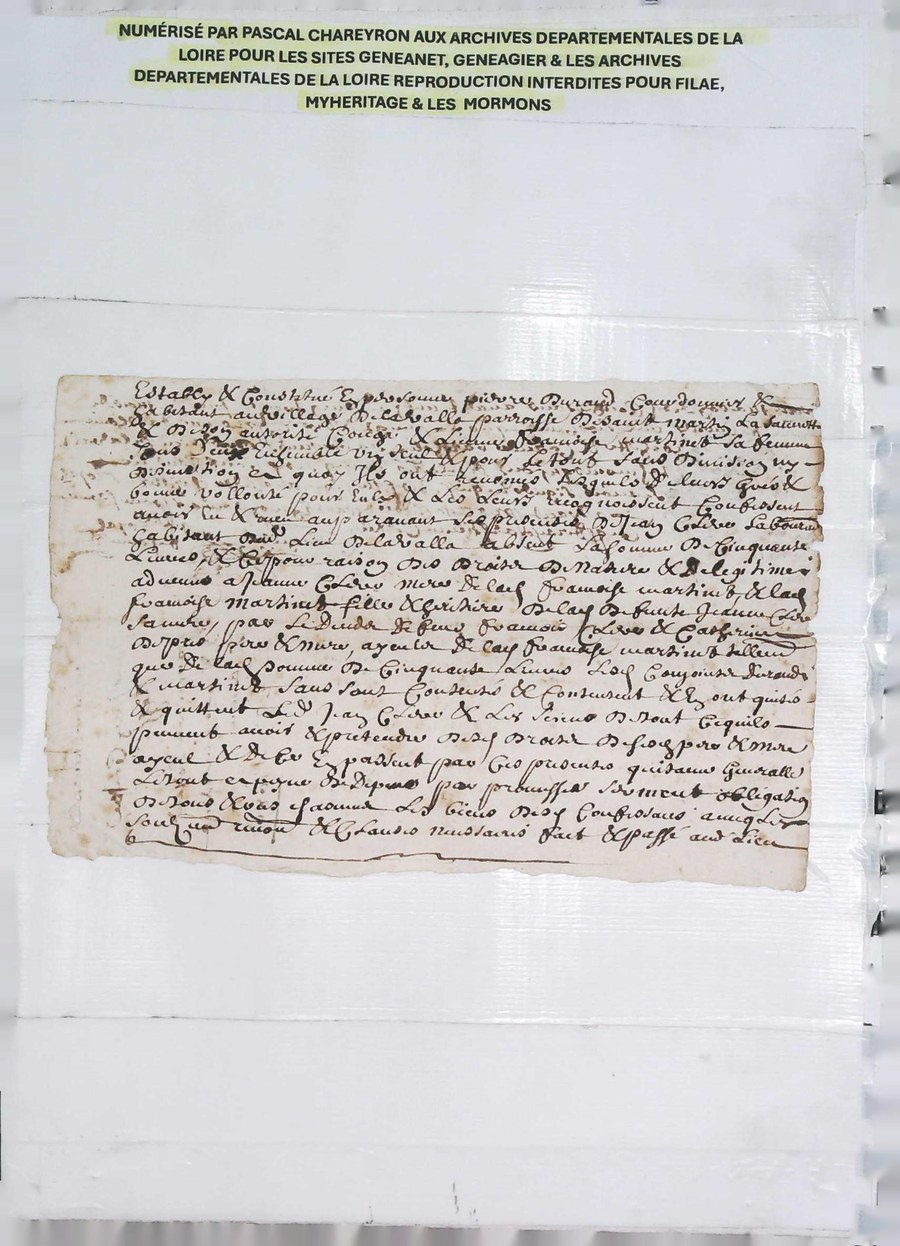 NUMÉRISÉ PAR PASCAL CHAREYRON AUX ARCHIVES DEPARTEMENTALES DE LA
LOIRE POUR LES SITES GENEANET, GENEAGIER & LES ARCHIVES
DEPARTEMENTALES DE LA LOIRE REPRODUCTION INTERDITES POUR FILAE,
MYHERITAGE & LES MORMONS
Estably & Constitué En personne pierre Durand Courdonnier &
habitant au village De lavalla parroisse De saint martin La
& De son autorité Conge & Licence francoise martinet sa femme
Tous Deux Ensemble un seul & pour Le tout sans Division ny
Discution es quoy Ils ont renoncés Lesquels De leurs grés &
bonne vollonté pour Eulx & Les Leurs recognoissent Confessent
avoir Eu & receu auparavant Ses presentes De Jean Laboureur
habitant aud Lieu De lavalla absent La somme De Cinquante
Livres, & Ce pour raison Des Droits De Nature & De legitime
advenus a Jeanne mere De lad francoise martinet & lad
francoise martinet fille & heritiere De lad Defunte Jeanne
par Le Deceds De feus francois & Catherine
pere & mere, ayeulx De lad francoise martinet tellem
que De lad somme De Cinquante Livres Lesd Conjoints durand
& martinet sans sont Contentés & Contentent & En ont quitté
& quittent Led Jean & Les siens De tout Ce quils
peuvent avoir & pretendre Desd Droits De sesd pere & mere
ayeul & De Ce En passent par Ces presentes quittance Generalle
Le tout es peyne De Depens par promesses serment obligation
De tous & uns chacuns Les biens Desd Confessans avecq Les
& Clauses necessaires fait & passé aud Lieu